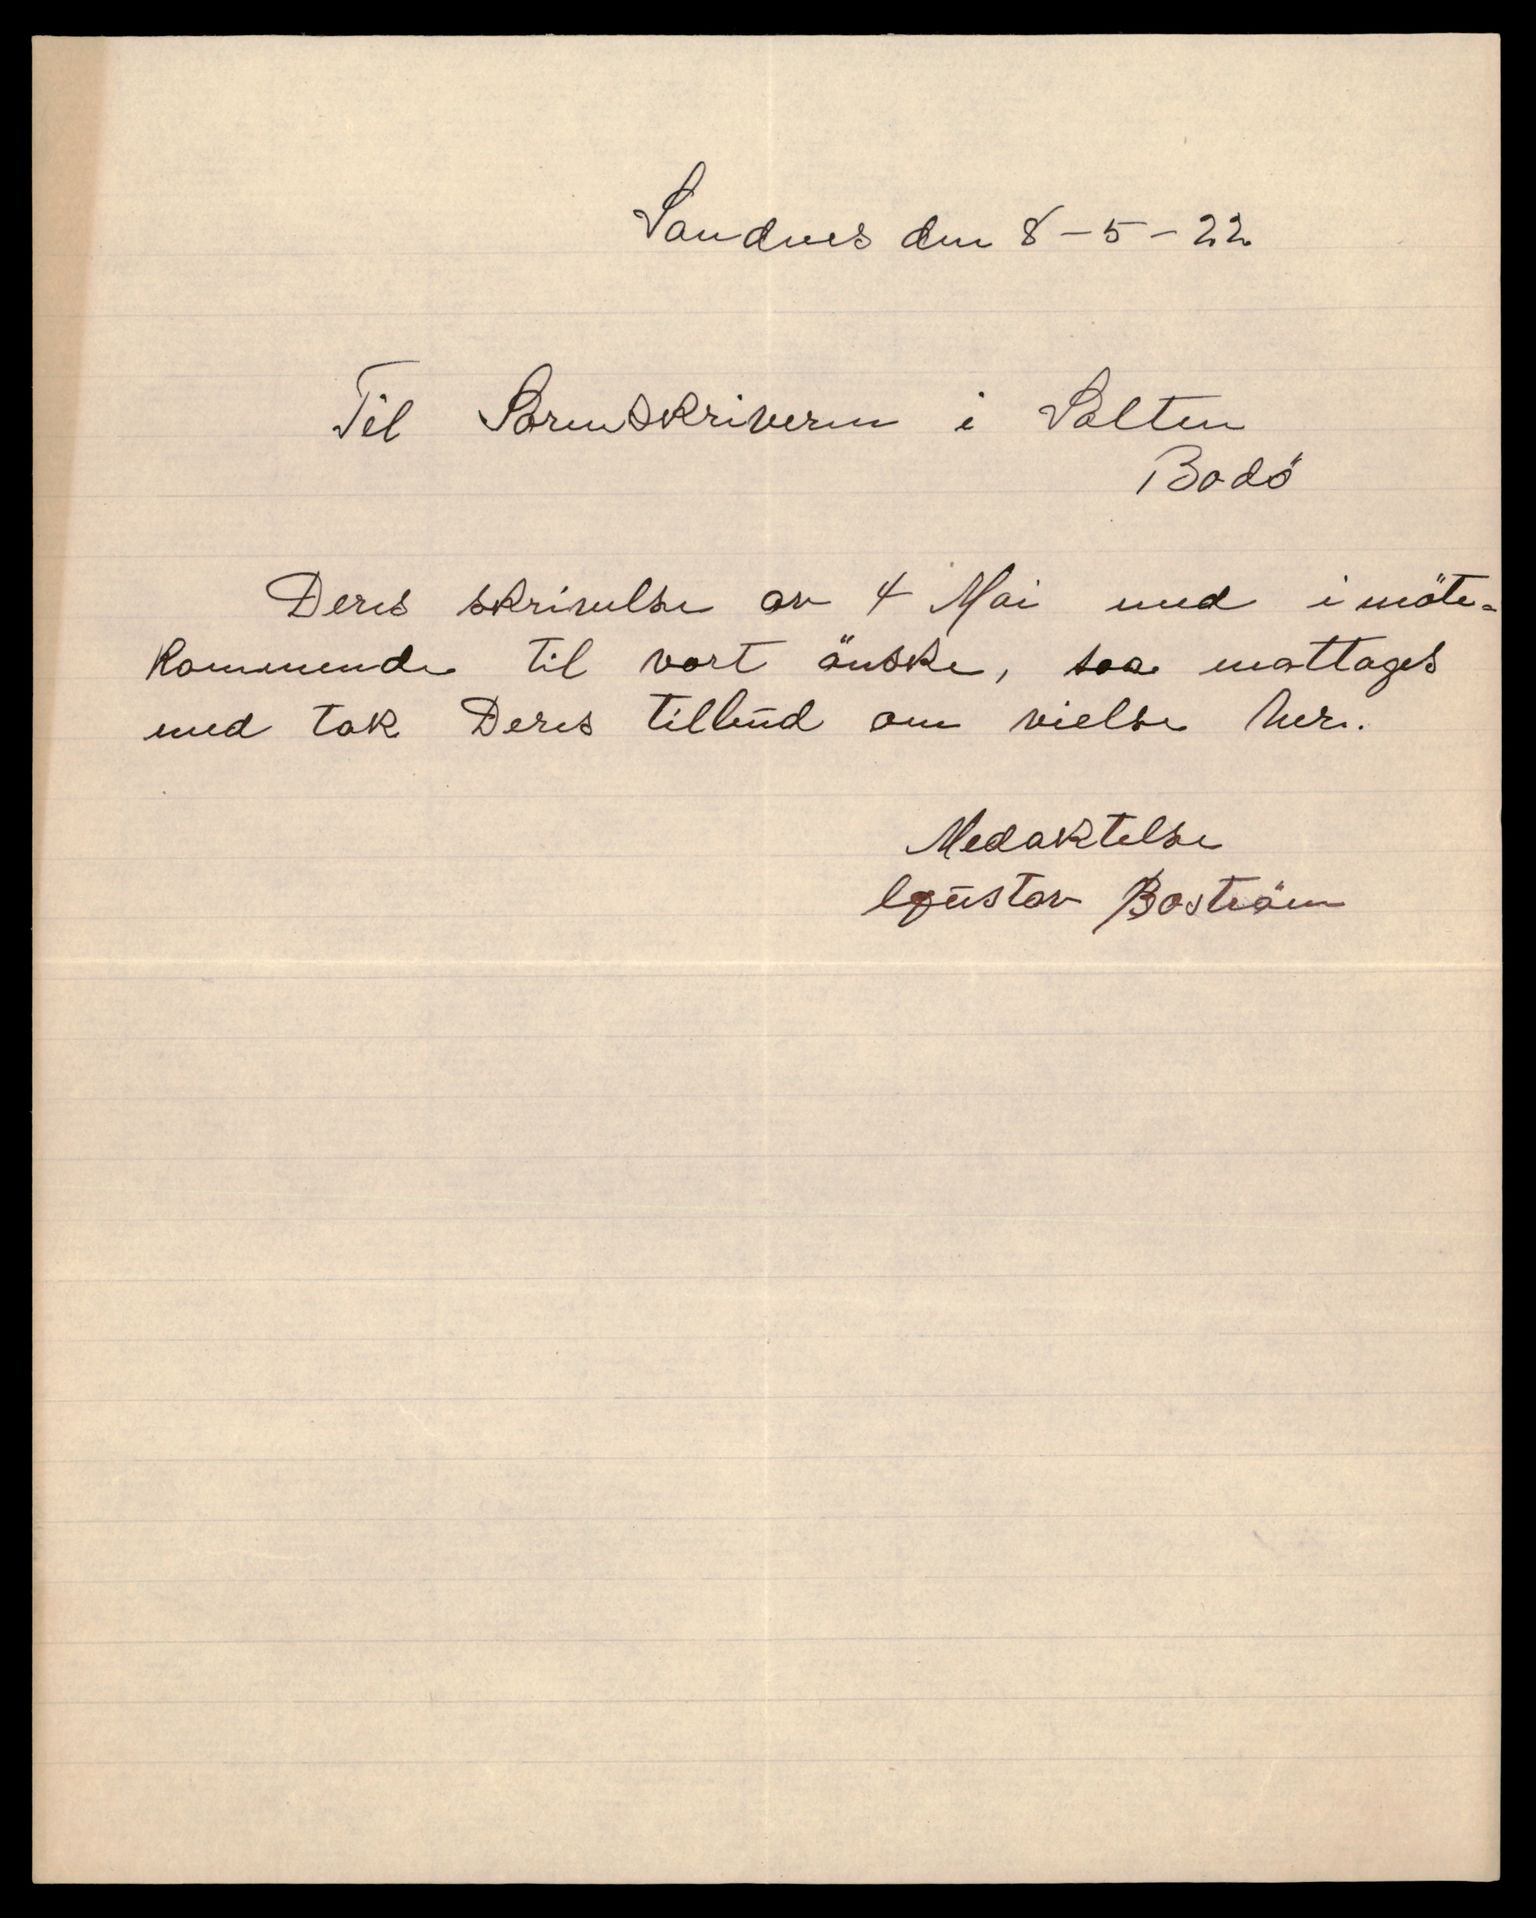 Sandnes den 8-5-22
Til Sorenskriveren i Salten
Bodö
Deres skrivelse av 4 Mai med imöte-
kommende til vort önske, saa mottages
med tak Deres tilbud om vielse her.
Medaktelse
Gustav Boström